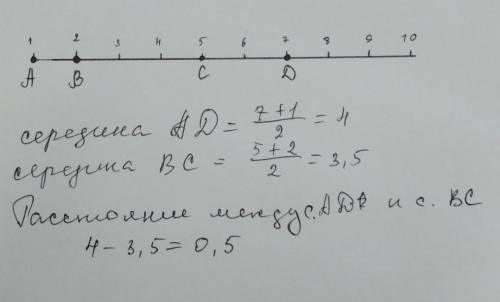 1 2 3 4 5 6 7 8 9 10
A B C D
середина AD = \frac{7+1}{2} = 4
середина BC = \frac{5+2}{2} = 3,5
Расстояние между с. AD и с. BC
4 - 3,5 = 0,5